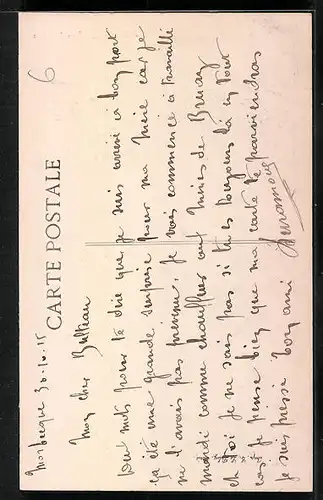 6
CARTE POSTALE
Morbecque 30.10.15
Mon cher Bultian
Deux mots pour te dire que je suis arrivé à bon port
ça été une grande surprise pour ma mère car je
ne l'avais pas prévenu. Je vais commencé à travaillé
mardi comme chauffeur aux mines de Bruay
et toi je ne sais pas si tu es toujours là en tout
cas je pense bien que ma carte te parviendras
Je suis pressé ton ami